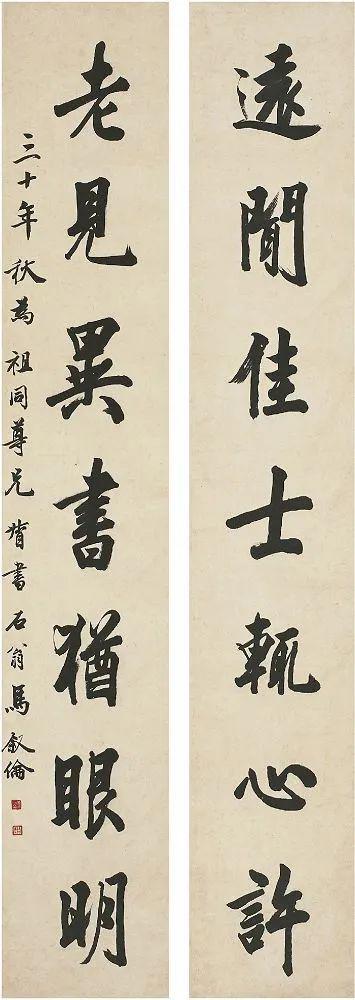 遠聞佳士輒心許
老見異書猶眼明
三十年秋為祖同尊兄背書石翁馬敘倫